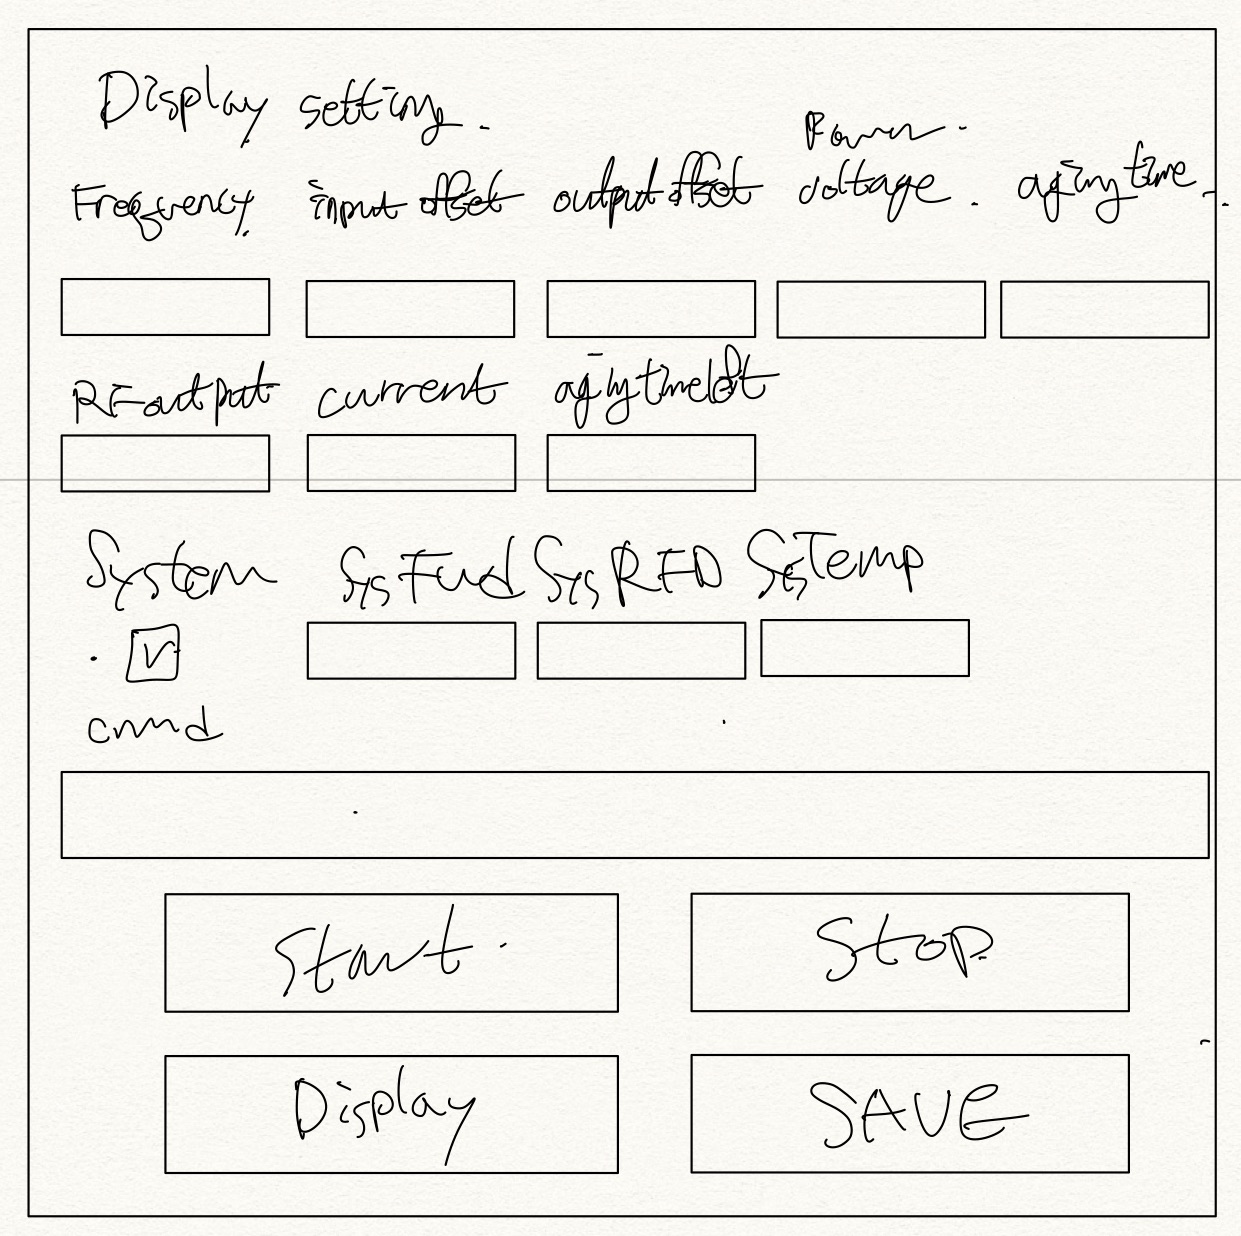 Display setting.
Power
Frequency input offset output offset voltage. aging time
RFoutput current aging time left
System SysFwd SysRFD SysTemp
cmmd
Start Stop
Display SAVE